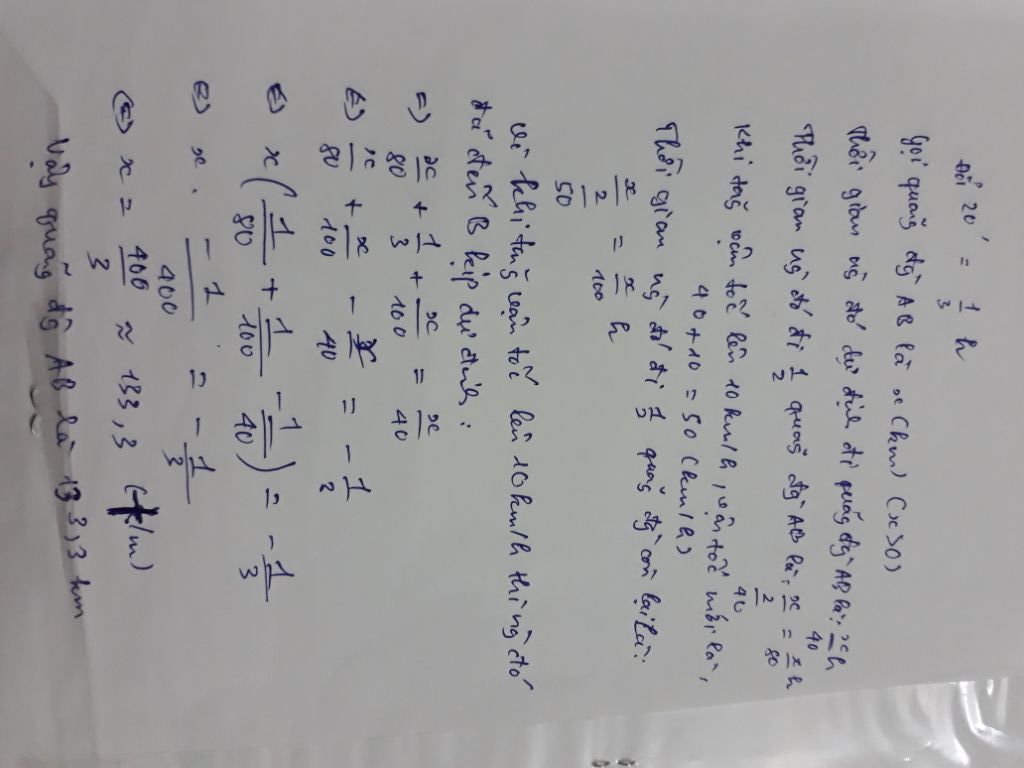 Đổi 20' = 1/3 h
Gọi quãng đg AB là x (km) (x>0)
Thời gian ng đó dự định đi quãng đg AB là: x/40 h
Thời gian ng đó đi 1/2 quãng đg AB là: x/2/40 = x/80 h
Khi tăng vận tốc lên 10km/h, vận tốc mới là,
40+10 = 50 (km/h)
Thời gian ng đó đi 1/2 quãng đg còn lại là:
x/2/50 = x/100 h
Vì khi tăng vận tốc lên 10km/h thì ng đó
đã đến B kịp dự định:
=) x/80 + 1/3 + x/100 = x/40
(=) x/80 + x/100 - x/40 = -1/2
(=) x(1/80 + 1/100 - 1/40) = -1/3
(=) x. -1/400 = -1/3
(=) x = 400/3 ≈ 133,3 (km)
Vậy quãng đg AB là 133,3 km